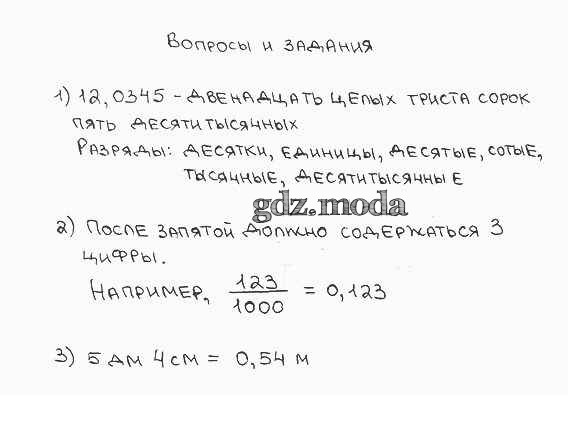 Вопросы и задания
1) 12,0345 - двенадцать целых триста сорок
пять десятитысячных
Разряды: десятки, единицы, десятые, сотые,
тысячные, десятитысячные
gdz.moda
2) После запятой должно содержаться 3
цифры.
Например, 123/1000 = 0,123
3) 5 дм 4 см = 0,54 м